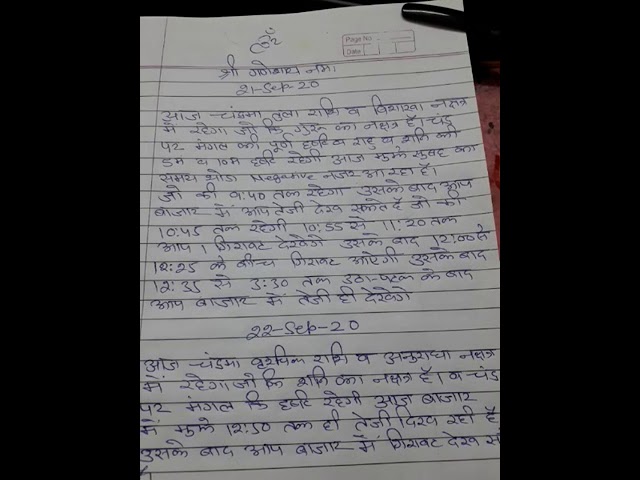 ॐ
Page No.
Date
श्री गणेशाय नमः
21-Sep-20
आज चंद्रमा तुला राशि व विशाखा नक्षत्र
में रहेगा जो कि गुरु का नक्षत्र है। चंद्र
पर मंगल की पूर्ण दृष्टि व राहु व शनि की
5म व 10म दृष्टि रहेगी आज मुझे सुबह का
समय थोडा Negative नजर आ रहा है।
जो की 9:40 तक रहेगा उसके बाद आप
बाजार में आप तेजी देख सकते है जो की
10:45 तक रहेगी 10:55 से 11:20 तक
आप। गिरावट देखेगे उसके बाद 12:00 से
12:25 के बीच गिरावट आऐगी उसके बाद
12:35 से 3:30 तक उठा-पटक के बाद
आप बाजार में तेजी ही देखेगे
22-Sep-20
आज चंद्रमा वृश्चिक राशि व अनुराधा नक्षत्र
में रहेगा जो कि शनि का नक्षत्र है। व चंद्र
पर मंगल कि दृष्टि रहेगी आज बाजार
में मुझे 12:50 तक ही तेजी दिख रही है
उसके बाद आप बाजार में गिरावट देख